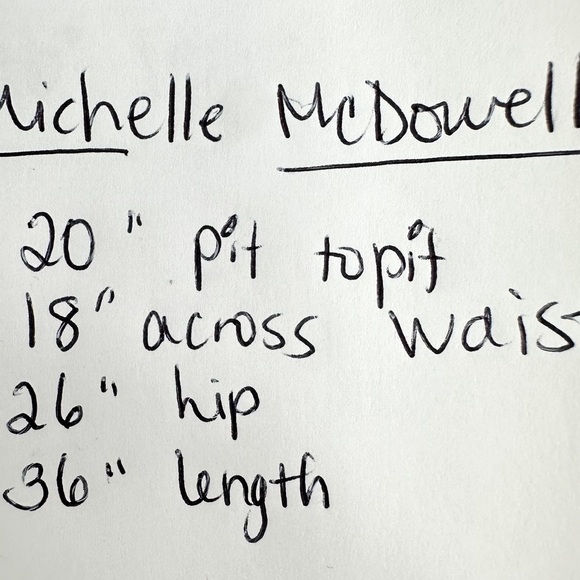 Michelle McDowell
20" pit to pit
18" across wais
26" hip
36" length